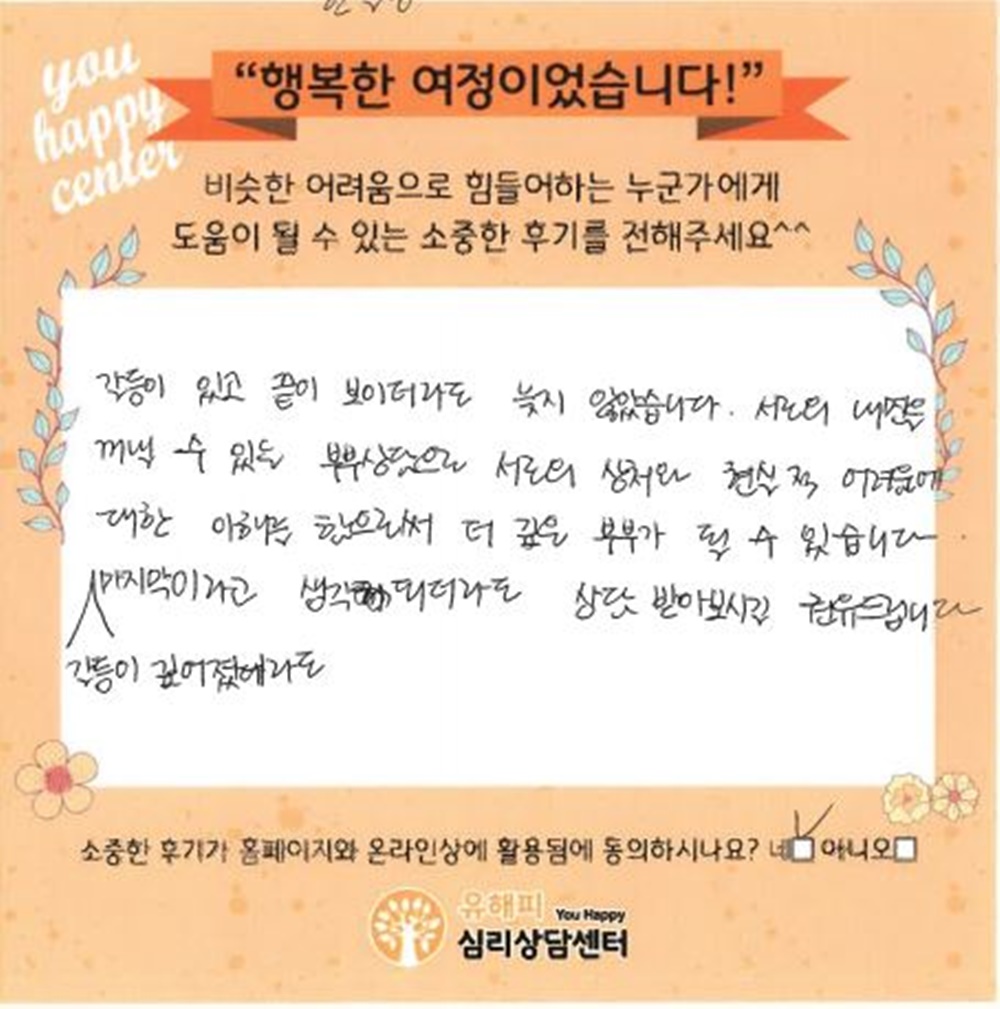 you
happy
center
“행복한 여정이었습니다!”
비슷한 어려움으로 힘들어하는 누군가에게
도움이 될 수 있는 소중한 후기를 전해주세요^^
갈등이 있고 끝이 보이더라도 늦지 않았습니다. 서로의 내면을
꺼낼 수 있는 부부상담으로 서로의 상처와 현실적 어려움에
대한 이해를 함으로써 더 깊은 부부가 될 수 있습니다.
마지막이라고 생각 되더라도 상담 받아보시길 권유드립니다
갈등이 깊어졌더라도
소중한 후기가 홈페이지와 온라인상에 활용됨에 동의하시나요? 네 아니오
유해피 You Happy
심리상담센터